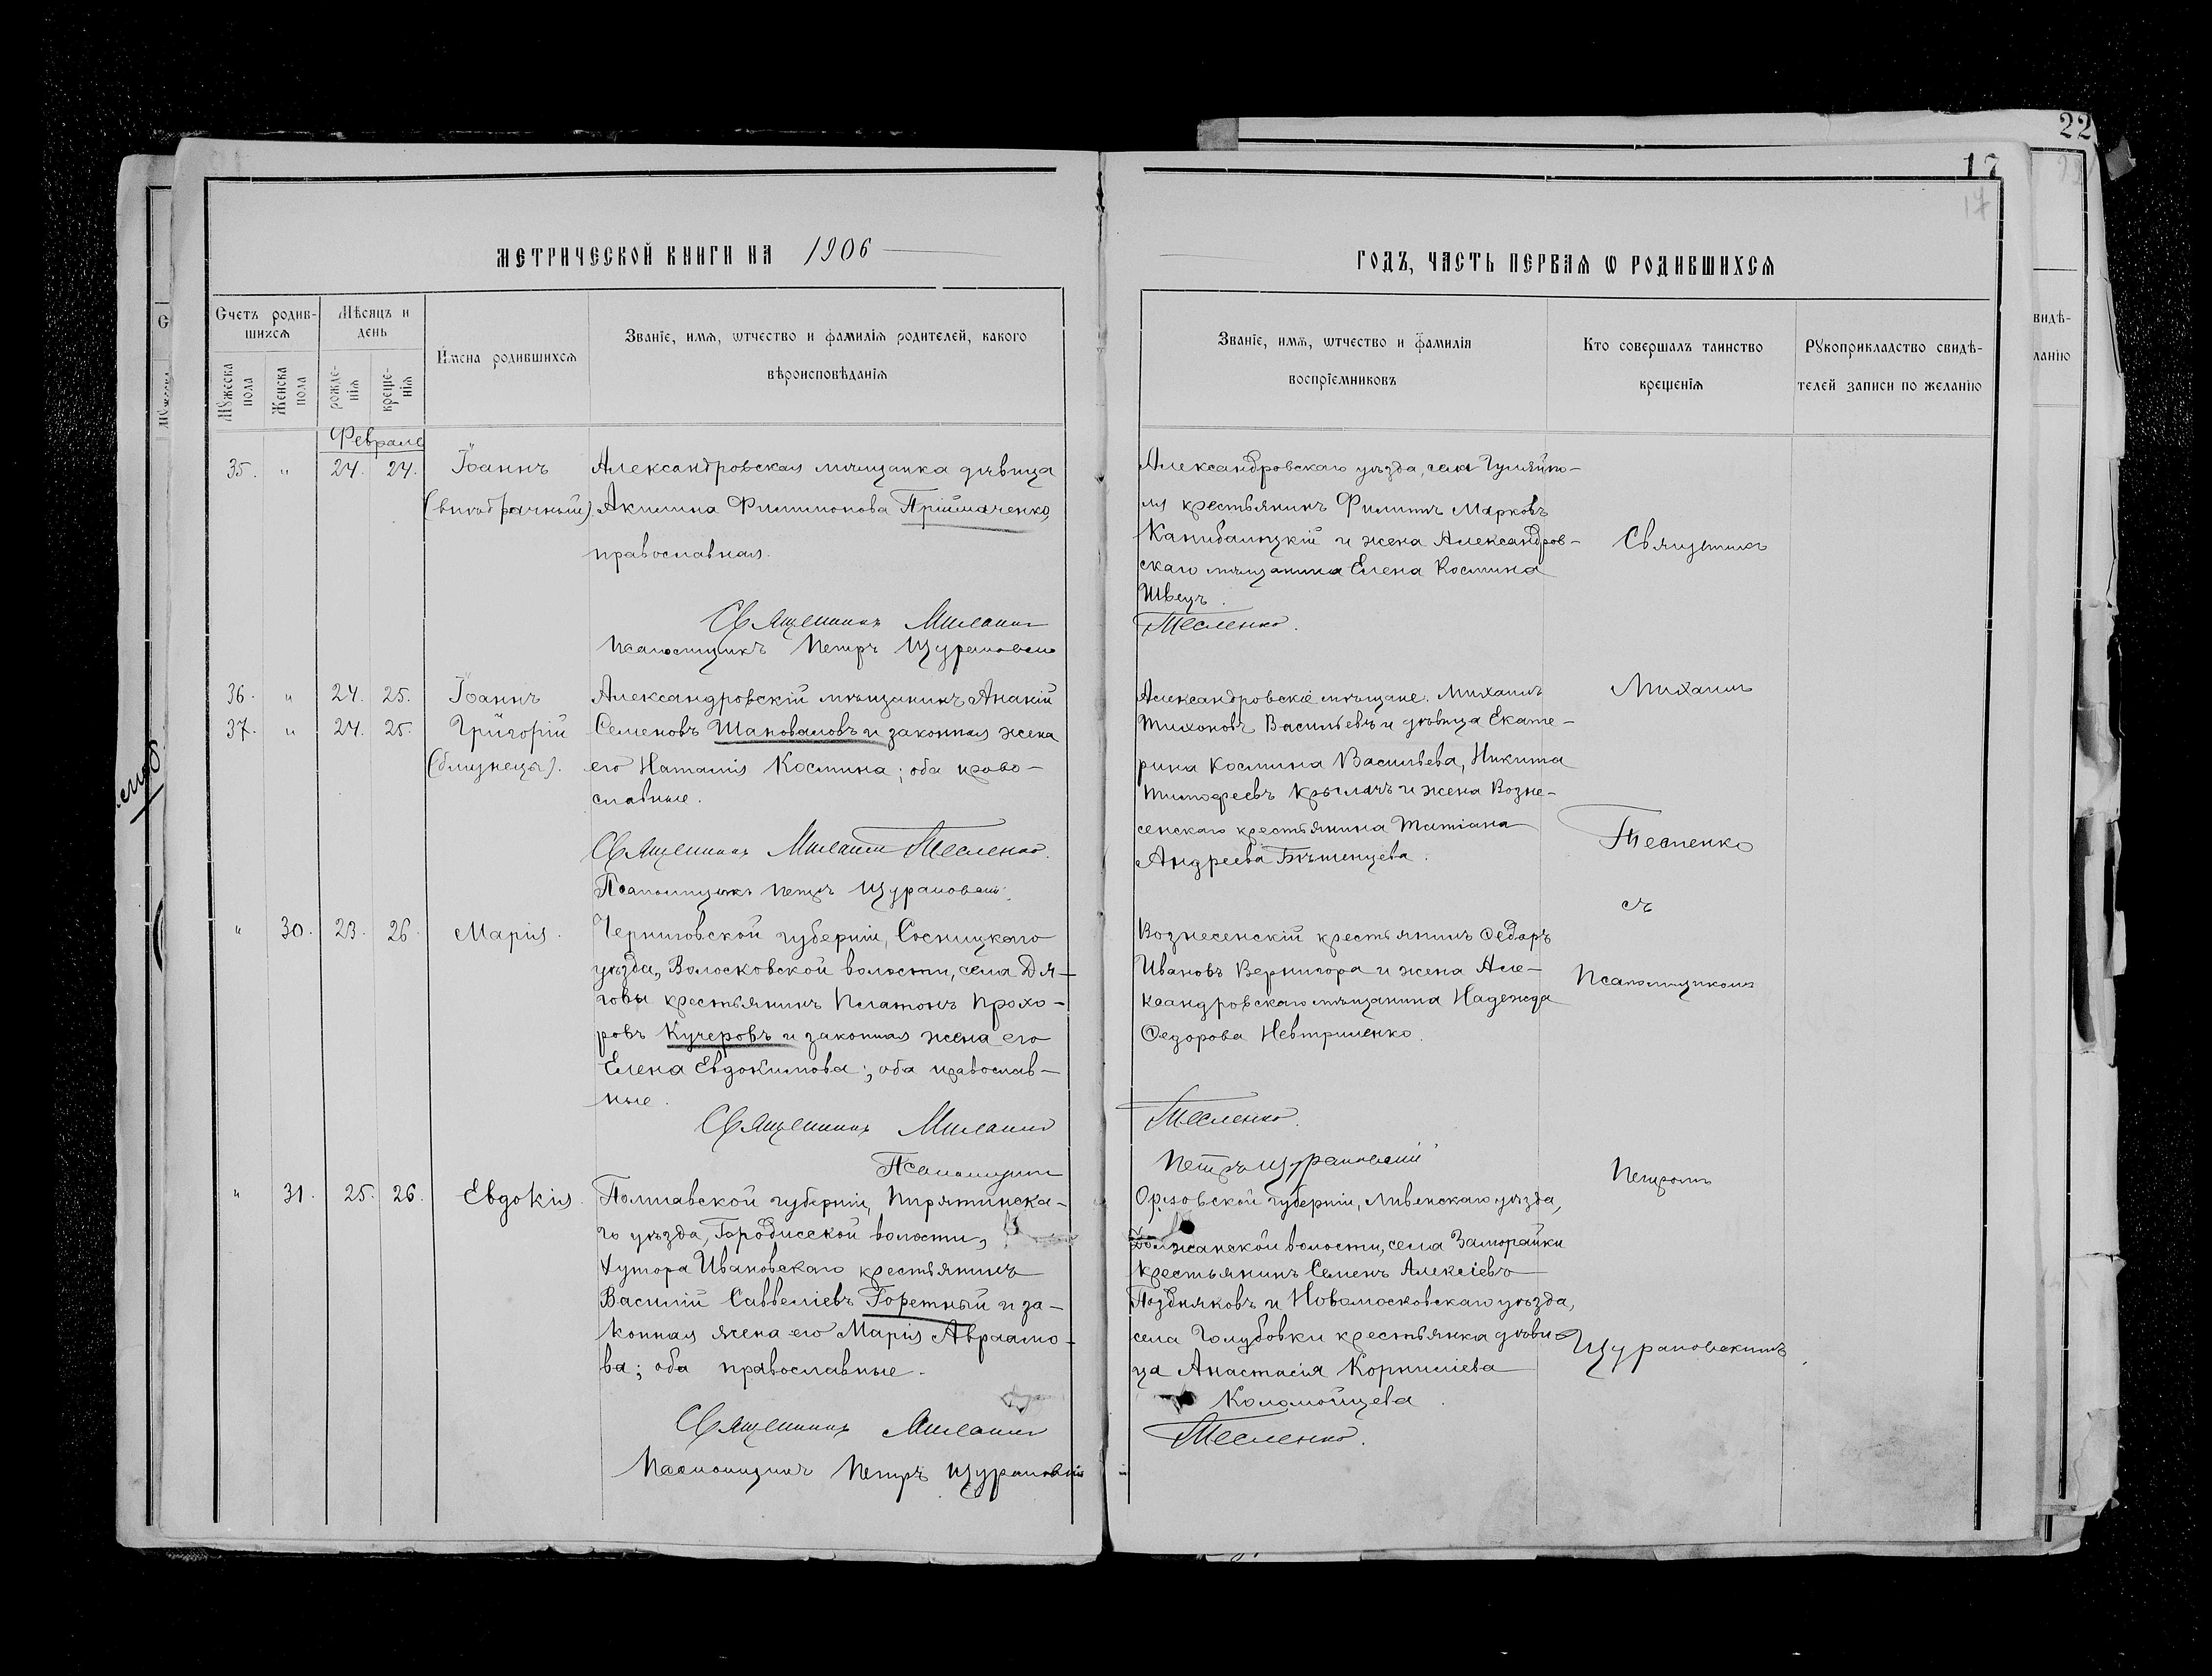 22
17
17
МЕТРИЧЕСКОЙ КНИГИ НА 1906
ГОДЪ, ЧАСТЬ ПЕРВАЯ Ѡ РОДИВШИХСЯ
Счетъ родившихся
Мѣсяцъ и день
Имена родившихся
Званіе, имя, ѡтчество и фамилія родителей, какого
вѣроисповѣданія
Мꙋжеска пола
Женска пола
рожденія
крещенія
Званіе, имя, ѡтчество и фамилія
воспріемниковъ
Кто совершалъ таинство
крещенія
Рꙋкоприкладство свидѣ-
телей записи по желанію
Февраль
35. " 24. 24. Іоаннъ
(внѣбрачный).
Александровская мѣщанка дѣвица
Акилина Филимонова Пріймаченко,
православная.
Священникъ Михаилъ
Псаломщикъ Петръ Щурановскій
Александровскаго уѣзда, села Гуляйпо-
ля крестьянинъ Филиппъ Марковъ
и жена Александров-
скаго мѣщанина Елена Космина
Швецъ.
Тесленко.
36. " 24. 25. Іоаннъ
37. " 24. 25. Григорій
(близнецы).
Александровскій мѣщанинъ Ананій
Семеновъ Шаповаловъ и законная жена
его Наталія Космина; оба право-
славные.
Священникъ Михаилъ Тесленко.
Псаломщикъ Петръ Щурановскій.
Александровскіе мѣщане: Михаилъ
Тихоновъ Васильевъ и дѣвица Екате-
рина Космина Васильева, Никита
Тимофеевъ Крылачъ и жена Возне-
сенскаго крестьянина Татіана
Андреева.
" 30. 23. 26. Марія.
Черниговской губерніи, Сосницкаго
уѣзда, Волосковской волости, села Дя-
говы крестьянинъ Платонъ Прохо-
ровъ Кучеровъ и законная жена его
Елена Евдокимова; оба православ-
ные.
Священникъ Михаилъ
Псаломщикъ
Вознесенскій крестьянинъ Ѳедоръ
Ивановъ Вернигора и жена Але-
ксандровскаго мѣщанина Надежда
Ѳедорова Невтриленко.
Тесленко.
Петръ Щурановскій
" 31. 25. 26. Евдокія.
Полтавской губерніи, Пирятинска-
го уѣзда, Городиской волости,
хутора Ивановскаго крестьянинъ
Василій Саввеліевъ Горетный и за-
конная жена его Марія Авраамо-
ва; оба православные.
Священникъ Михаилъ
Псаломщикъ Петръ Щурановскій
Орловской губерніи, Ливенскаго уѣзда,
Должанской волости, села Заморайки
крестьянинъ Семенъ Алексіевъ
Поздняковъ и Новомосковскаго уѣзда,
села Голубовки крестьянка дѣви-
ца Анастасія Корниліева
Коломойцева.
Тесленко.
Священникъ
Михаилъ
Тесленко
съ
Псаломщикомъ
Петромъ
Щурановскимъ.